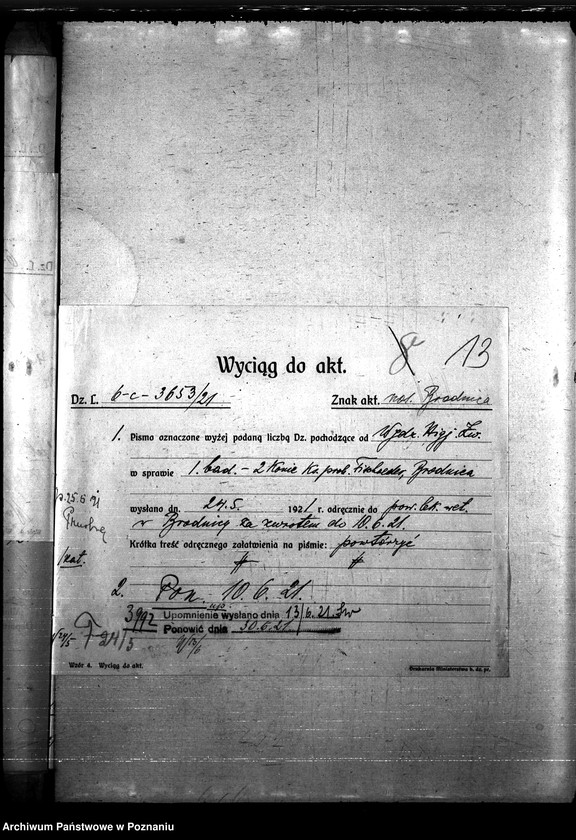 8 13
Wyciąg do akt.
Dz. L. 6-c-3653/21 Znak akt. nos. Brodnica
1. Pisma oznaczone wyżej podaną liczbą Dz. pochodzące od Wydz. Higj. Zw.
w sprawie 1. bad. - 2 konie
Brodnica
wysłano dn. 24.5. 1921 r. odręcznie do pow. lek. wet.
w Brodnicy za zwrotem do 10.6.21.
Krótka treść odręcznego załatwienia na piśmie: powtórzyć
2. Pon. 10.6.21.
3992 Upomnienie wysłano dnia 13/6.21.
Ponowić dnia 30.6.21.
24/5
Wzór 4. Wyciąg do akt.
Drukarnia Ministerstwa b. dz. pr.
Archiwum Państwowe w Poznaniu